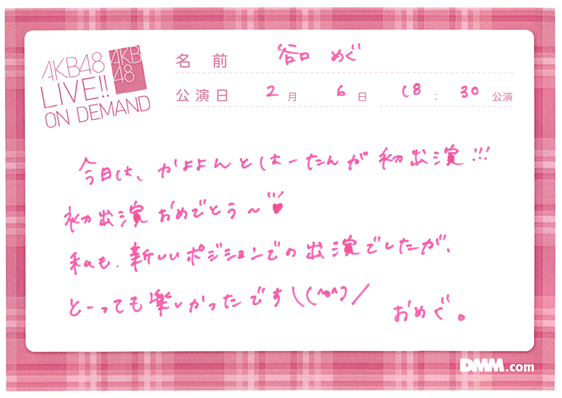 AKB48
LIVE!!
ON DEMAND
AKB
48
名前 谷口 めぐ
公演日 2月 6日 18:30公演
今日は、かよよんとはーたんが初出演!!!
初出演おめでとう〜!!♥
私も、新しいポジションでの出演でしたが、
とーっても楽しかったです\(^o^)/
おめぐ。
DMM.com